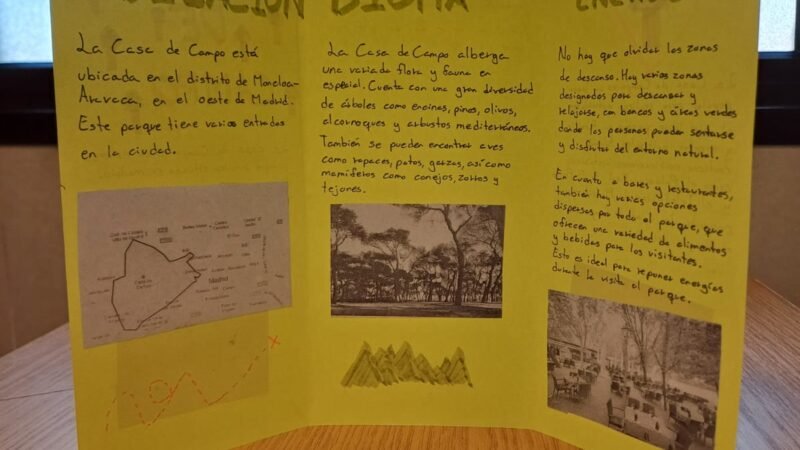 UBICACIÓN
La Casa de Campo está
ubicada en el distrito de Moncloa-
Aravaca, en el oeste de Madrid.
Este parque tiene varias entradas
en la ciudad.
Casa de Campo
Madrid
BIOMA
La Casa de Campo alberga
una variada flora y fauna en
especial. Cuenta con una gran diversidad
de árboles como encinas, pinos, olivos,
alcornoques y arbustos mediterráneos.
También se pueden encontrar aves
como rapaces, patos, garzas, así como
mamíferos como conejos, zorros y
tejones.
No hay que olvidar las zonas
de descanso. Hay varias zonas
designadas para descansar y
relajarse, con bancos y áreas verdes
donde las personas pueden sentarse
y disfrutar del entorno natural.
En cuanto a bares y restaurantes,
también hay varias opciones
dispersas por todo el parque, que
ofrecen una variedad de alimentos
y bebidas para los visitantes.
Esto es ideal para reponer energías
durante la visita al parque.